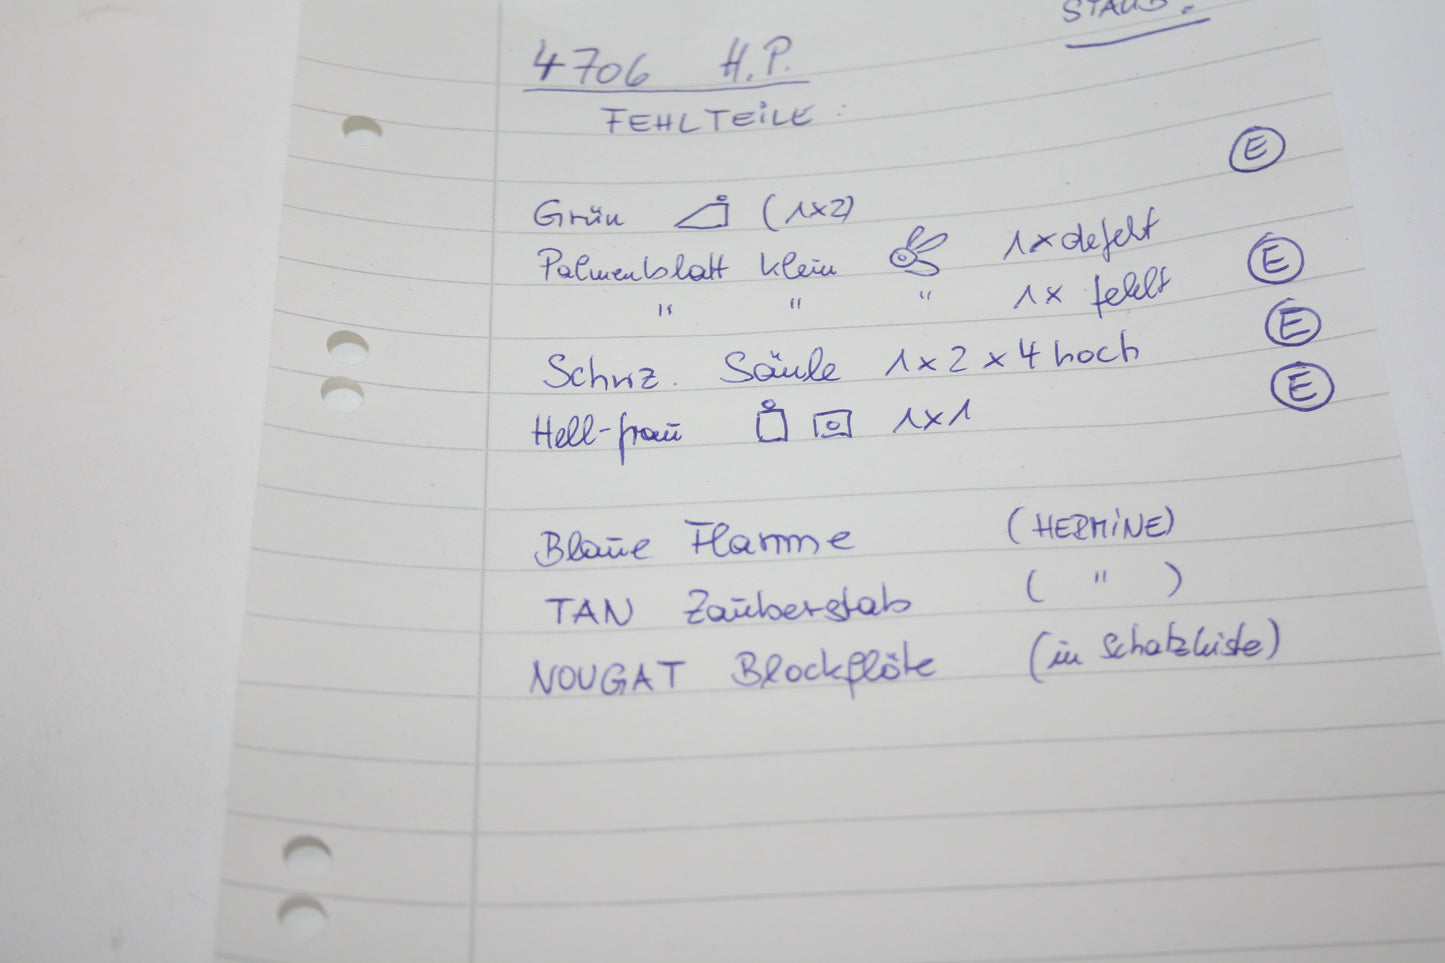 STAUB.
4706 H.P.
FEHLTEILE:
E
Grün (1x2)
Palmenblatt klein 1x defekt
E
" " " 1x fehlt
E
Schwz. Säule 1x2x4 hoch
E
Hell-grau 1x1
Blaue Flamme (HERMINE)
TAN Zauberstab ( " )
NOUGAT Blockflöte (in Schatzkiste)